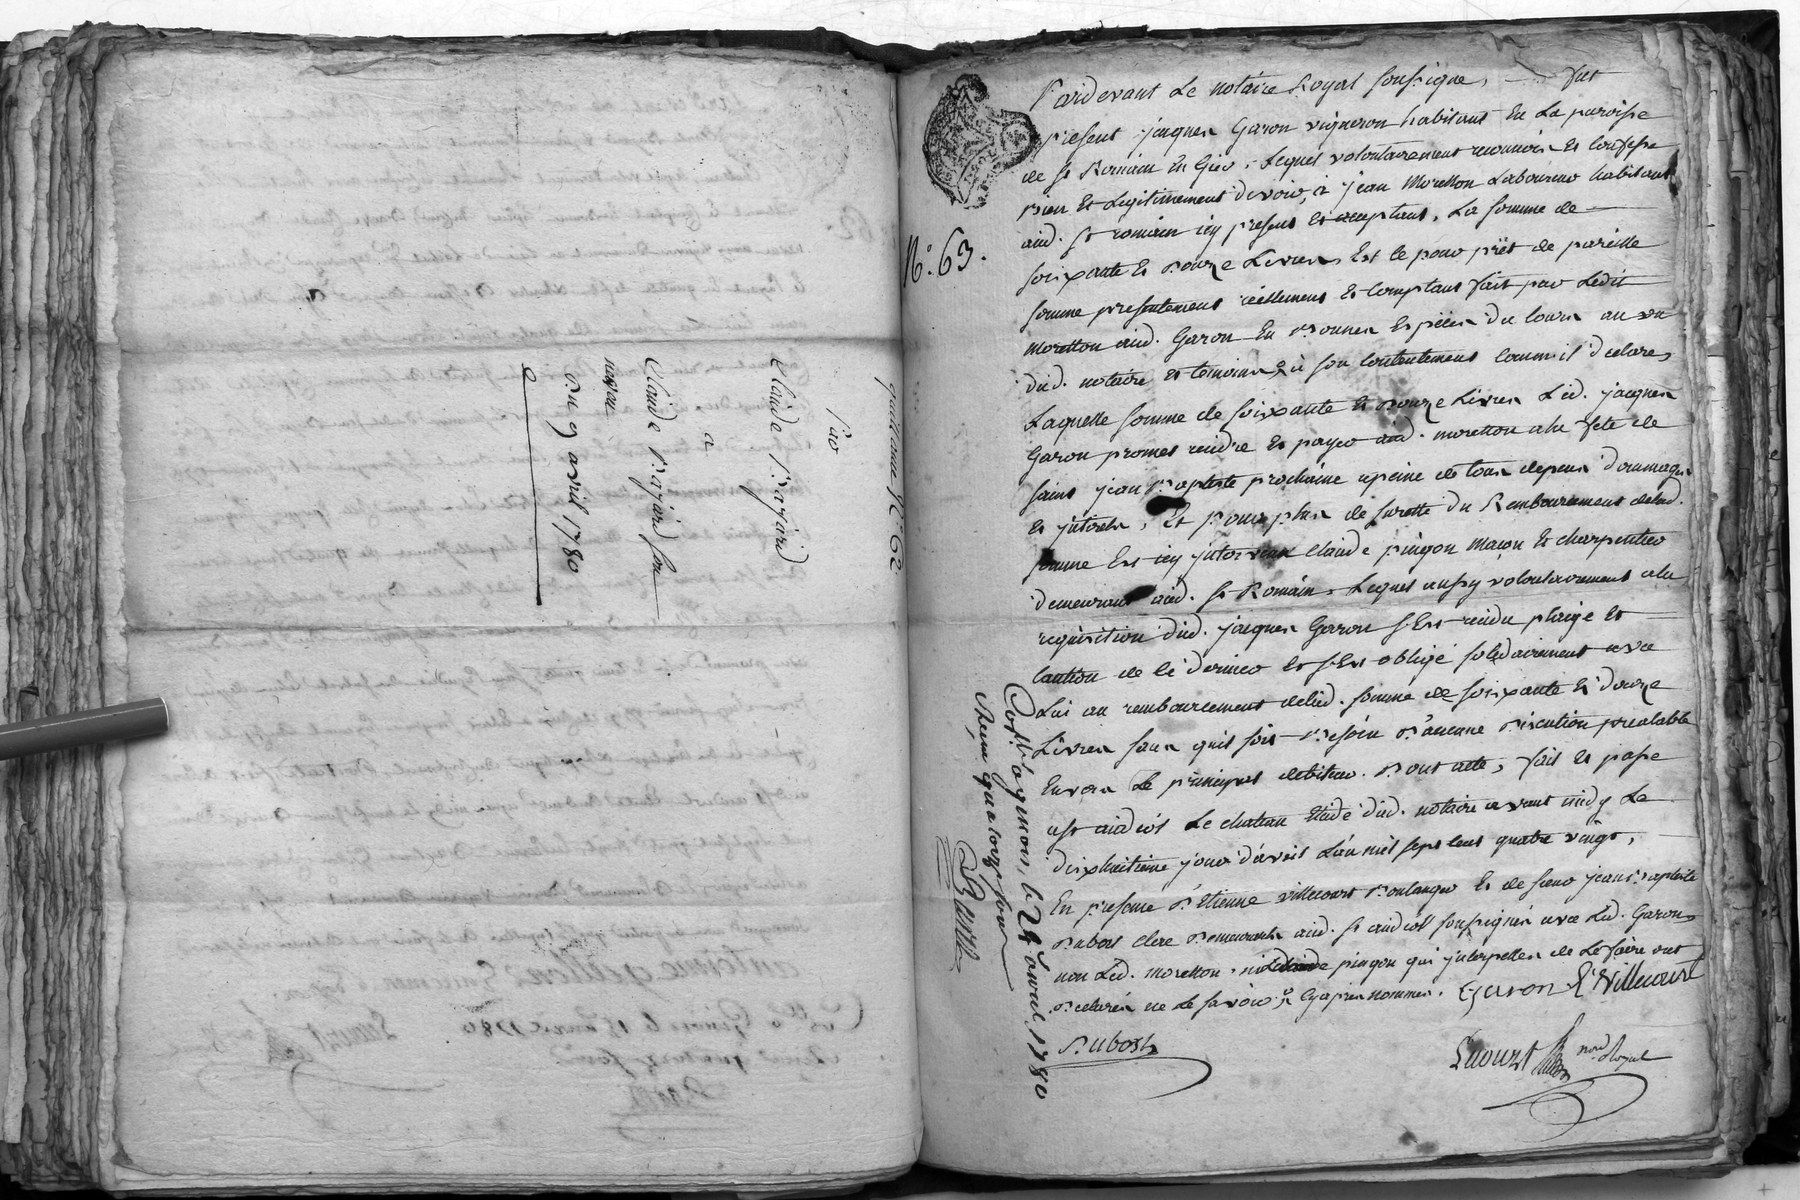 quittance N.° 62
Par
Claude Bajard
a
Claude Bajard son
neveu
Du 9 avril 1780
N.° 63.
Pardevant Le notaire Royal soussigne, fut
present jacques Garon vigneron habitant En La paroisse
de st Romain En Gier, Lequel volontairement reconnoit Et Confesse
bien Et Legitimement devoir, à jean Moretton Laboureur habitant
aud. st romain icy present Et acceptant, La somme de
soixante Et Douze Livres, Est ce pour prêt de pareille
somme presentement réellement Et Comptant fait par Ledit
Moretton aud. Garon En Bonnes Espèces du Cours au vu
dud. notaire Et temoins, Et à son Contentement Comm'il declare,
Laquelle somme de soixante Et Douze Livres Led. jacques
Garon promet rendre Et payer aud. moretton a la fete de
saint jean Baptiste prochaine a peine de tous depens Dommages
Et jnterets, Et pour plus de surette du Remboursement de lad.
somme Est icy jntervenu Claude pingon Maçon Et charpentier
demeurant aud. st Romain, Lequel aussy volontairement a la
requisition dud. jacques Garon s'Est rendu plaige Et
Caution de Ce dernier Et s'Est obligé solidairement avec
Lui au remboursement de lad. somme de soixante Et douze
Livres sans qu'il soit Besoin D'aucune Discution prealable
Envers Le principal debiteur. Dont acte, fait Et passé
a st andéol Le chateau Etude dud. notaire avant midy Le
dixhuitieme jour d'avril L'an mil sept Cent quatre vingt,
En presence D'Etienne villecourt Boulanger Et de sieur jean Baptiste
Dubost Clerc Demeurants aud. st andéol soussignés avec Led. Garon
non Led. moretton, ni Claude pingon qui jnterpellés de Le faire ont
Declarés ne Le savoir, Cy apres nommés. Garon E. Villecourt
Dubost
notre Royal
Coll.é a givors, le 28 avril 1780
Reçu quatorze sous